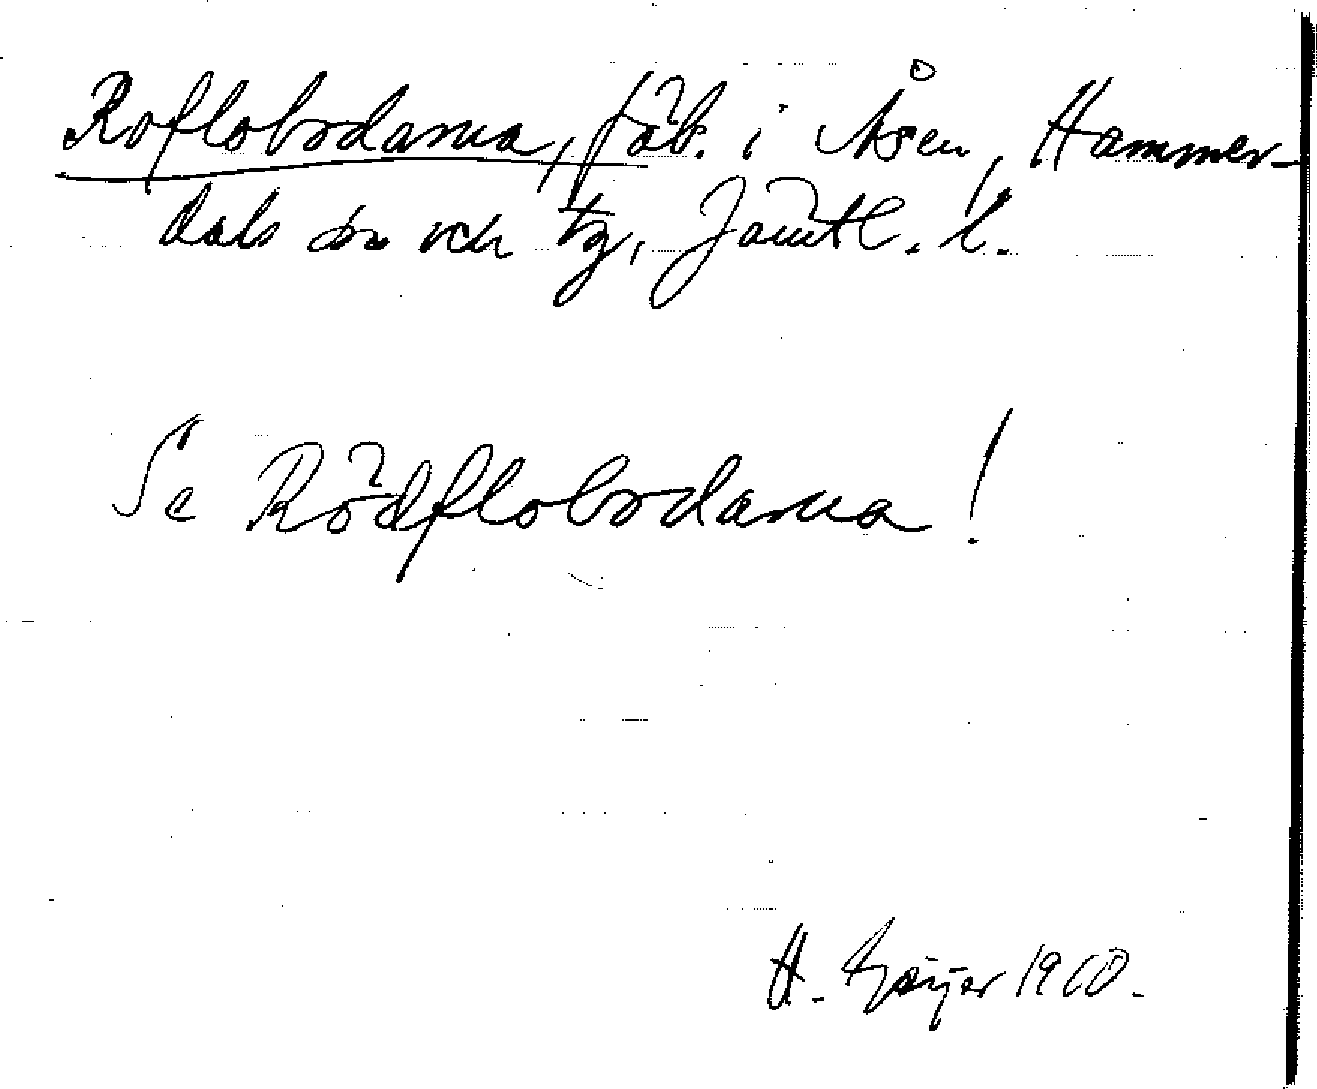 Roflobodarna, fäb. i Åsen, Hammer-
dals sn och tg, Jämtl. l.
Se Rödflobodarna!
H. Geijer 1910.